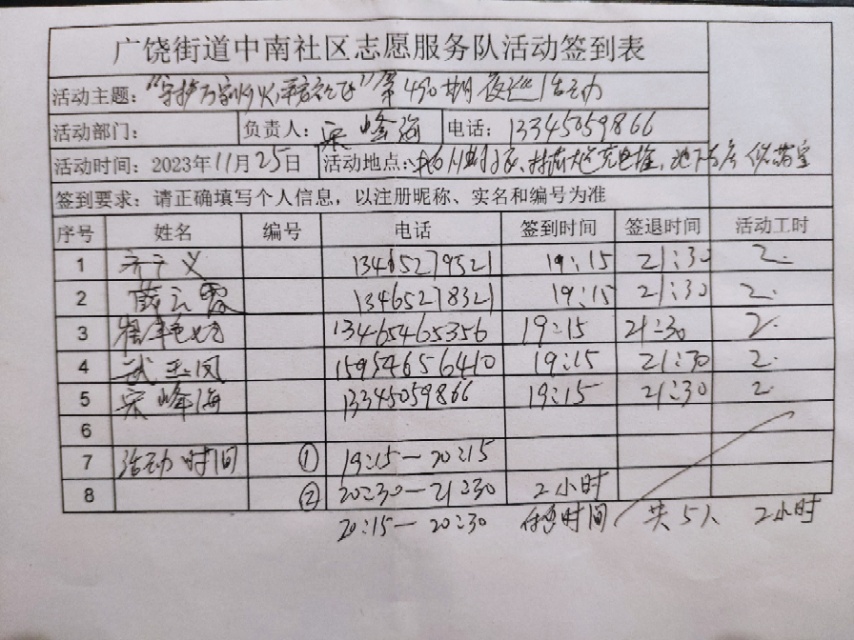 广饶街道中南社区志愿服务队活动签到表
活动主题：“守护万家灯火，平安 ”第490期夜巡活动
活动部门： 负责人：宋峰海 电话：13345059866
活动时间：2023年11月25日 活动地点： 充电桩，地下
签到要求：请正确填写个人信息，以注册昵称、实名和编号为准
序号 姓名 编号 电话 签到时间 签退时间 活动工时
1 义 13465279521 19:15 21:30 2.
2 薛云霞 13465278321 19:15 21:30 2.
3 13465465356 19:15 21:30 2.
4 武玉凤 15954656410 19:15 21:30 2.
5 宋峰海 13345059866 19:15 21:30 2.
6
7 活动时间 ① 19:15—20:15
8 ② 20:30—21:30 2小时
20:15—20:30 休息时间 共5人 2小时